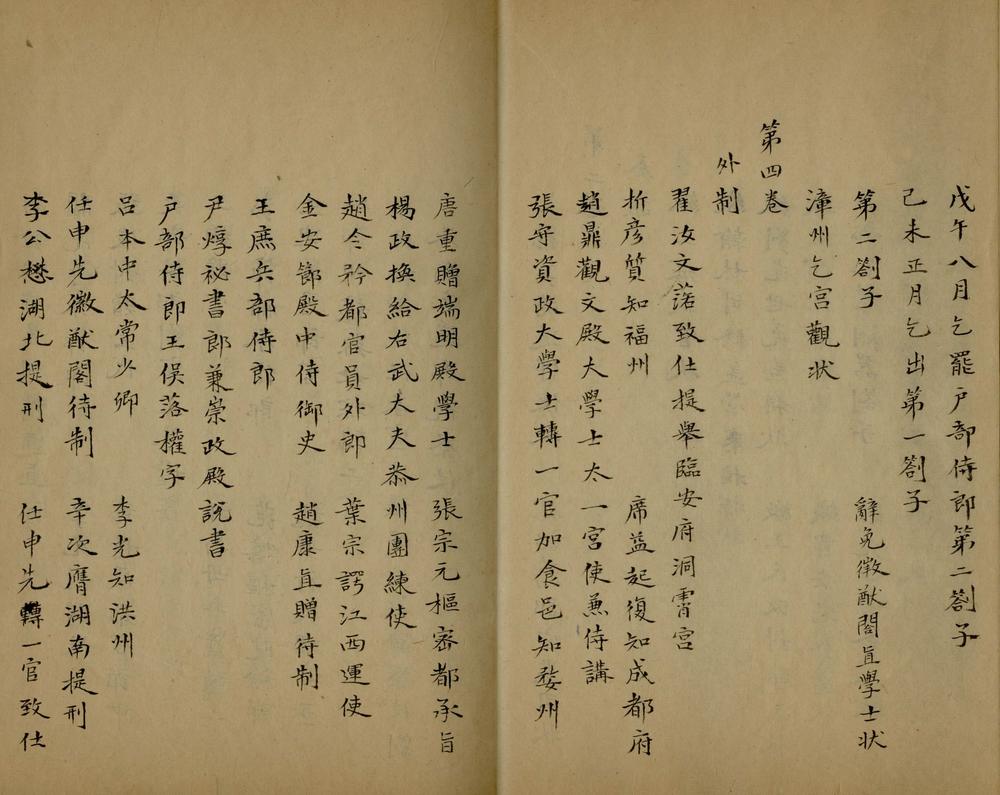 戊午八月乞罷户部侍郎第二劄子
己未正月乞出第一劄子
第二劄子　辭免徽猷閣直學士狀
漳州乞宮觀狀
第四卷
外制
翟汝文落致仕提舉臨安府洞霄宮
折彥質知福州　席益起復知成都府
趙鼎觀文殿大學士太一宮使兼侍講
張守資政大學士轉一官加食邑知婺州
唐重贈端明殿學士　張宗元樞密都承旨
楊政換給右武大夫恭州團練使
趙令衿都官員外郎　葉宗諤江西運使
金安節殿中侍御史　趙康直贈待制
王庶兵部侍郎
尹焞祕書郎兼崇政殿說書
户部侍郎王俁落權字
呂本中太常少卿　李光知洪州
任申先徽猷閣待制　辛次膺湖南提刑
李公懋湖北提刑　任申先轉一官致仕